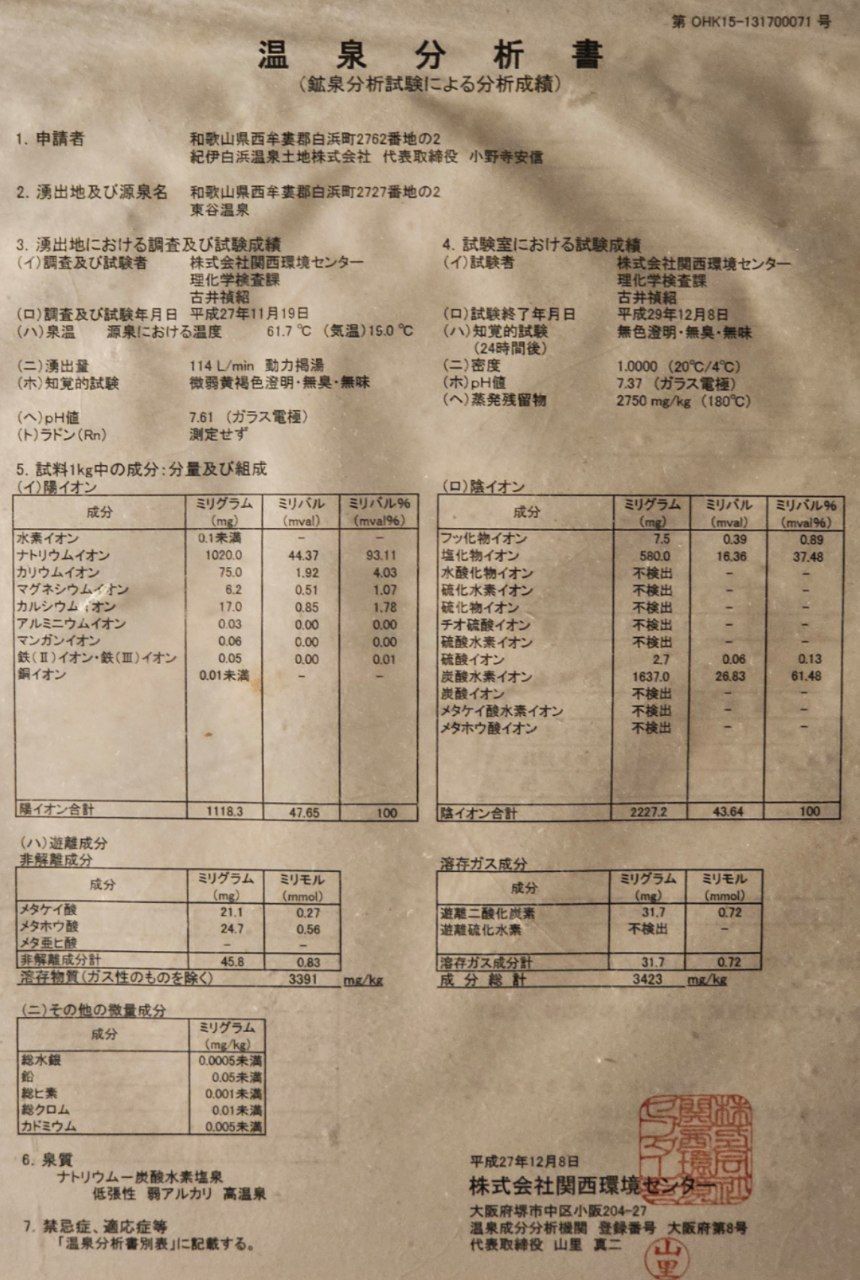 第 OHK15-131700071 号
温泉分析書
(鉱泉分析試験による分析成績)
1. 申請者 和歌山県西牟婁郡白浜町2762番地の2
紀伊白浜温泉土地株式会社 代表取締役 小野寺安信
2. 湧出地及び源泉名 和歌山県西牟婁郡白浜町2727番地の2
東谷温泉
3. 湧出地における調査及び試験成績
(イ)調査及び試験者 株式会社関西環境センター
理化学検査課
古井禎紹
(ロ)調査及び試験年月日 平成27年11月19日
(ハ)泉温 源泉における温度 61.7 ℃ (気温)15.0 ℃
(ニ)湧出量 114 L/min 動力揚湯
(ホ)知覚的試験 微弱黄褐色澄明・無臭・無味
(ヘ)pH値 7.61 (ガラス電極)
(ト)ラドン(Rn) 測定せず
4. 試験室における試験成績
(イ)試験者 株式会社関西環境センター
理化学検査課
古井禎紹
(ロ)試験終了年月日 平成29年12月8日
(ハ)知覚的試験 無色澄明・無臭・無味
(24時間後)
(ニ)密度 1.0000 (20℃/4℃)
(ホ)pH値 7.37 (ガラス電極)
(ヘ)蒸発残留物 2750 mg/kg (180℃)
5. 試料1kg中の成分:分量及び組成
(イ)陽イオン
成分 ミリグラム(mg) ミリバル(mval) ミリバル%(mval%)
水素イオン 0.1未満 − −
ナトリウムイオン 1020.0 44.37 93.11
カリウムイオン 75.0 1.92 4.03
マグネシウムイオン 6.2 0.51 1.07
カルシウムイオン 17.0 0.85 1.78
アルミニウムイオン 0.03 0.00 0.00
マンガンイオン 0.06 0.00 0.00
鉄(Ⅱ)イオン・鉄(Ⅲ)イオン 0.05 0.00 0.01
銅イオン 0.01未満 − −
陽イオン合計 1118.3 47.65 100
(ロ)陰イオン
成分 ミリグラム(mg) ミリバル(mval) ミリバル%(mval%)
フッ化物イオン 7.5 0.39 0.89
塩化物イオン 580.0 16.36 37.48
水酸化物イオン 不検出 − −
硫化水素イオン 不検出 − −
硫化物イオン 不検出 − −
チオ硫酸イオン 不検出 − −
硫酸水素イオン 不検出 − −
硫酸イオン 2.7 0.06 0.13
炭酸水素イオン 1637.0 26.83 61.48
炭酸イオン 不検出 − −
メタケイ酸水素イオン 不検出 − −
メタホウ酸イオン 不検出 − −
陰イオン合計 2227.2 43.64 100
(ハ)遊離成分
非解離成分
成分 ミリグラム(mg) ミリモル(mmol)
メタケイ酸 21.1 0.27
メタホウ酸 24.7 0.56
メタ亜ヒ酸 − −
非解離成分計 45.8 0.83
溶存物質(ガス性のものを除く) 3391 mg/kg
溶存ガス成分
成分 ミリグラム(mg) ミリモル(mmol)
遊離二酸化炭素 31.7 0.72
遊離硫化水素 不検出 −
溶存ガス成分計 31.7 0.72
成分総計 3423 mg/kg
(ニ)その他の微量成分
成分 ミリグラム(mg/kg)
総水銀 0.0005未満
鉛 0.05未満
総ヒ素 0.001未満
総クロム 0.01未満
カドミウム 0.005未満
6. 泉質
ナトリウムー炭酸水素塩泉
低張性 弱アルカリ 高温泉
7. 禁忌症、適応症等
「温泉分析書別表」に記載する。
平成27年12月8日
株式会社関西環境センター
大阪府堺市中区小阪204-27
温泉成分分析機関 登録番号 大阪府第8号
代表取締役 山里 真二
山里